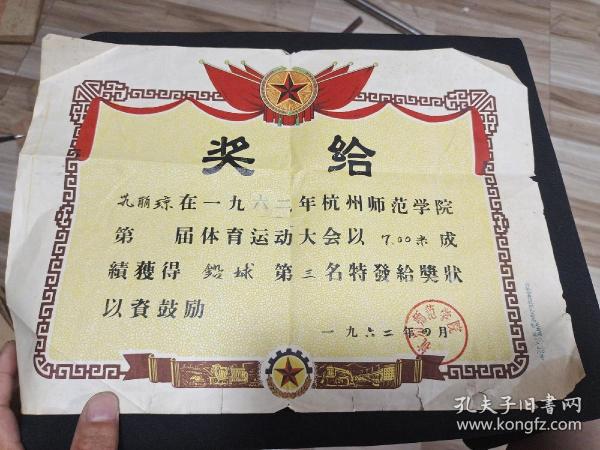 奖给
丽琼在一九六二年杭州师范学院
第 届体育运动大会以 7.00米 成
績獲得 鉛球 第三名特發給獎狀
以資鼓励
一九六二年四月
孔夫子旧書网
www.kongfz.com